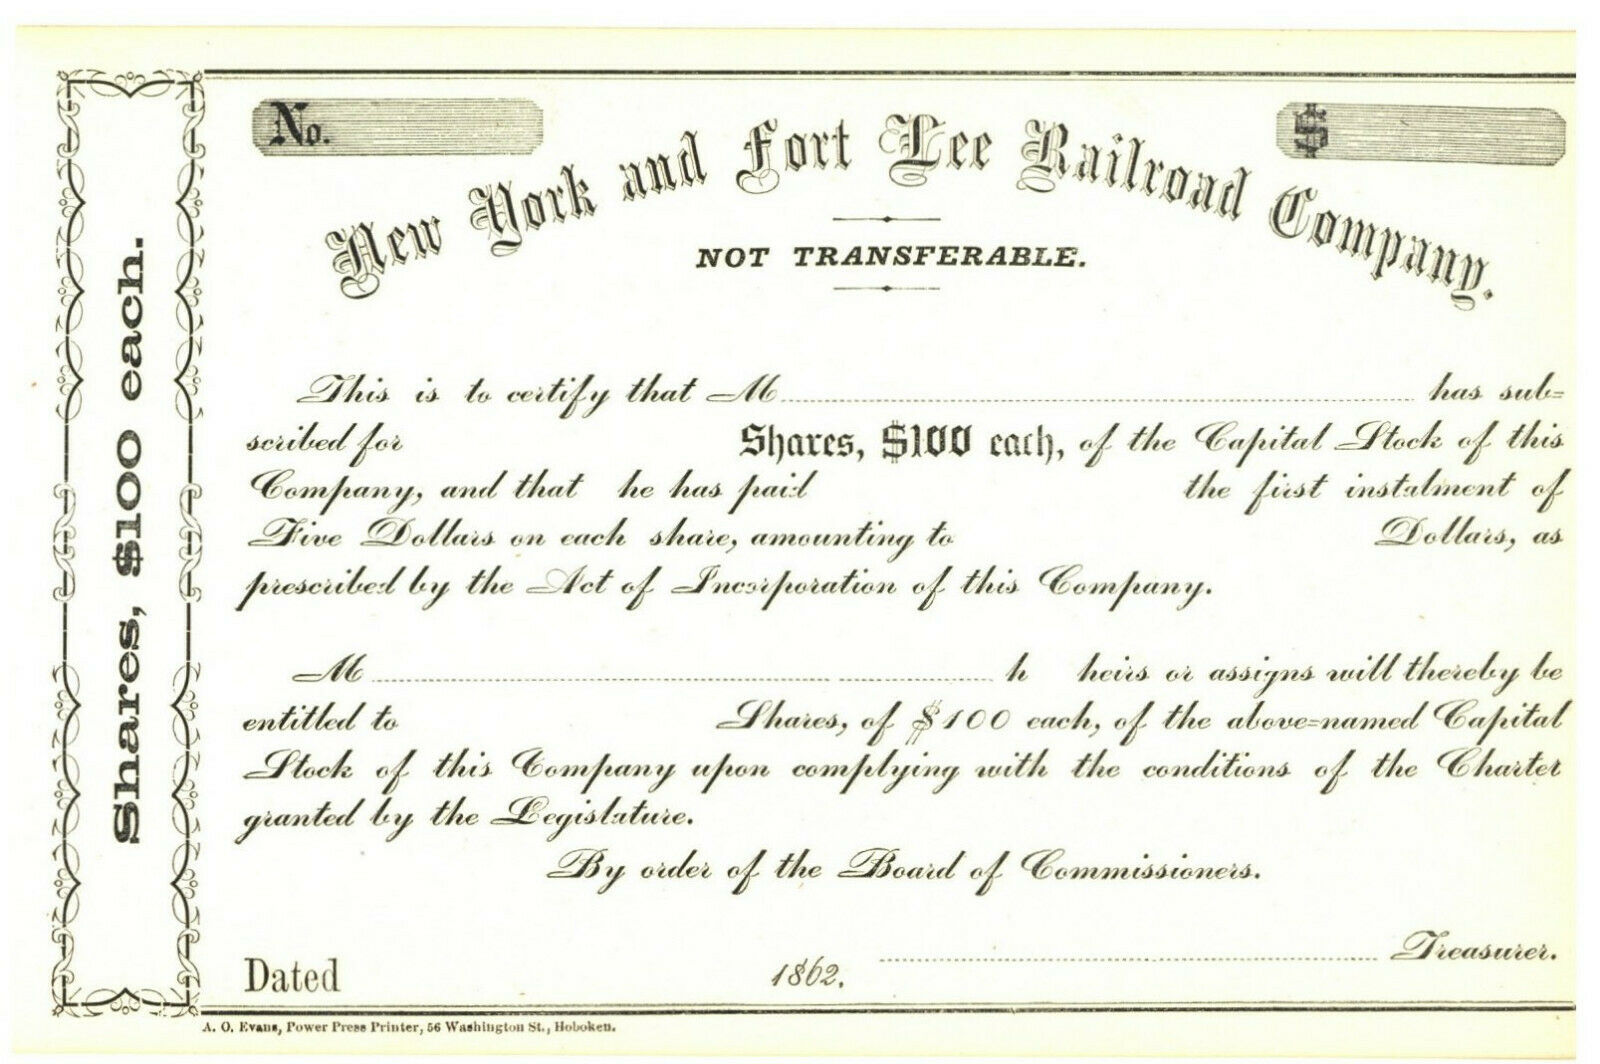 No.
$
New York and Fort Lee Railroad Company.
NOT TRANSFERABLE.
Shares, $100 each.
This is to certify that M has sub=
scribed for Shares, $100 each, of the Capital Stock of this
Company, and that he has paid the first instalment of
Five Dollars on each share, amounting to Dollars, as
prescribed by the Act of Incorporation of this Company.
M h heirs or assigns will thereby be
entitled to Shares, of $100 each, of the above=named Capital
Stock of this Company upon complying with the conditions of the Charter
granted by the Legislature.
By order of the Board of Commissioners.
Treasurer.
Dated 1862.
A. O. Evans, Power Press Printer, 56 Washington St., Hoboken.